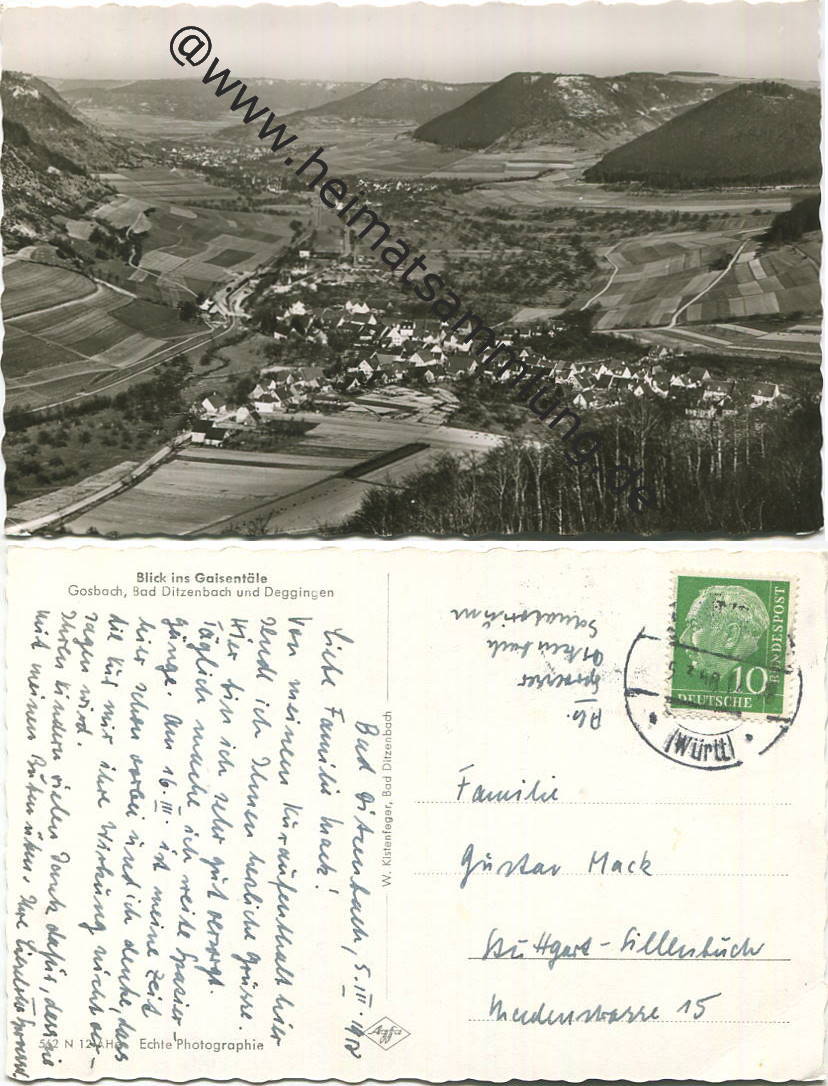 @www.heimatsammlung.de
Blick ins Gaisentäle
Gosbach, Bad Ditzenbach und Deggingen
Bad Ditzenbach, 5. III.
Liebe Familie Mack!
Von meinem Kuraufenthalt hier
sende ich Ihnen herzliche Grüsse.
Hier bin ich sehr gut versorgt.
Täglich mache ich weite Spazier-
gänge. Am 16. III. ist meine Zeit
hier schon vorbei und ich denke, dass
die Kur mir ihre Wirkung nicht ver-
sagen wird.
Ihren Kindern vielen Dank dafür, dass sie
mit meinen
W. Kistenfeger, Bad Ditzenbach
Agfa
562 N 12
Echte Photographie
Ab.
Ditzenbach
Sanatorium
10
DEUTSCHE
BUNDESPOST
(Württ)
Familie
Gustav Mack
Stuttgart-Sillenbuch
15